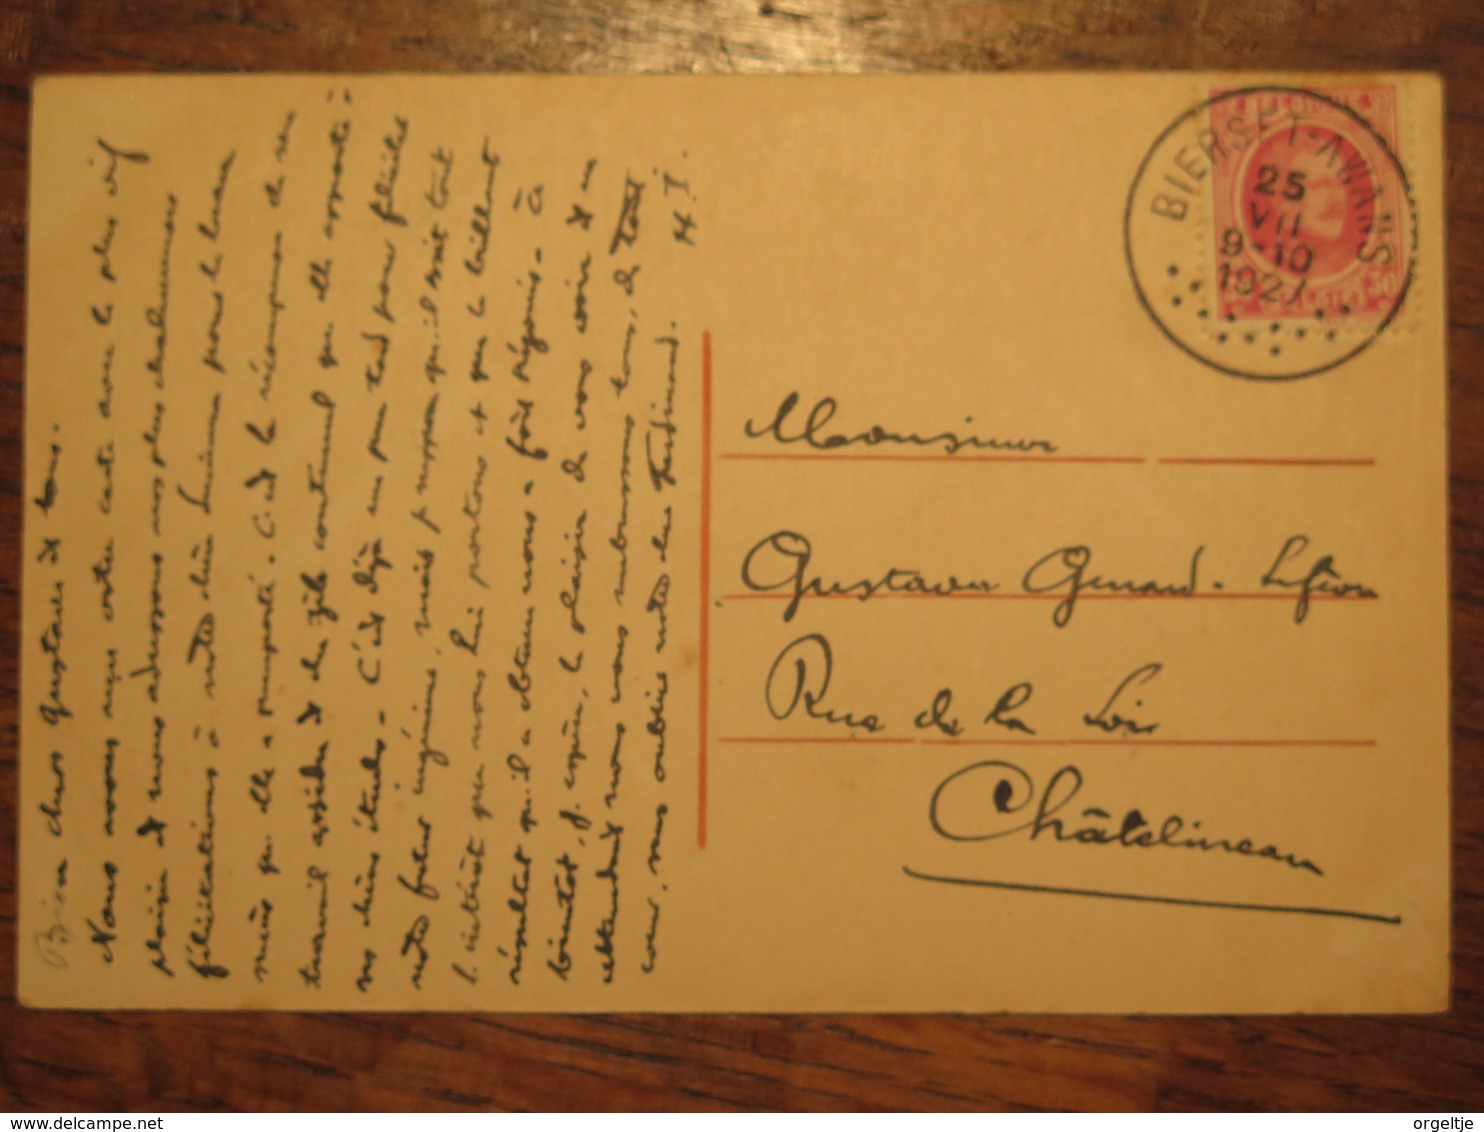 Bien chers Gustave et tous.
Nous avons reçu votre carte avec le plus vif
plaisir et vous adressons nos plus chaleureuses
félicitations à votre chère Lucienne pour le beau
succès qu'elle a remporté. C'est la récompense de son
travail assidu et du zèle continuel qu'elle apporte à
ses chères études. C'est déjà un peu tard pour féliciter
votre futur ingénieur, mais je suppose qu'il sait tout
l'intérêt que nous lui portons et que le brillant
résultat qu'il a obtenu nous a fort réjouis. À
bientôt, j'espère, le plaisir de vous voir et en
attendant nous vous embrassons tous, de tout
cœur, sans oublier votre cher Ferdinand. H.J.
BELGIQUE
30
BIERSET-AWANS
25
VII
9-10
1927
Monsieur
Gustave Genard-Lefèvre
Rue de la Loi
Châtelineau
orgeltje